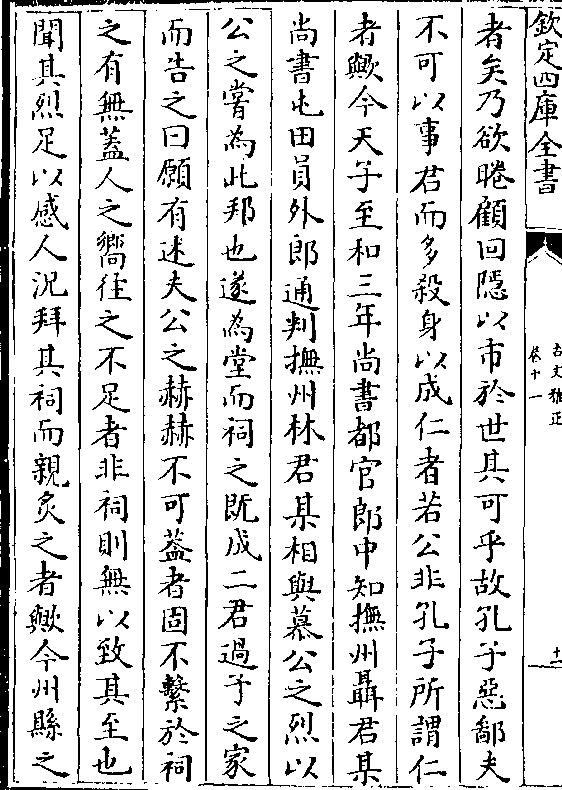 欽定四庫全書
古文雅正
卷十一
十二
者矣乃欲睠顧回隱以市於世其可乎故孔子惡鄙夫
不可以事君而多殺身以成仁者若公非孔子所謂仁
者歟今天子至和三年尚書都官郎中知撫州聶君某
尚書屯田員外郎通判撫州林君某相與慕公之烈以
公之嘗為此邦也遂為堂而祠之既成二君過予之家
而告之曰願有述夫公之赫赫不可葢者固不繫於祠
之有無蓋人之嚮往之不足者非祠則無以致其至也
聞其烈足以感人況拜其祠而親炙之者歟今州縣之